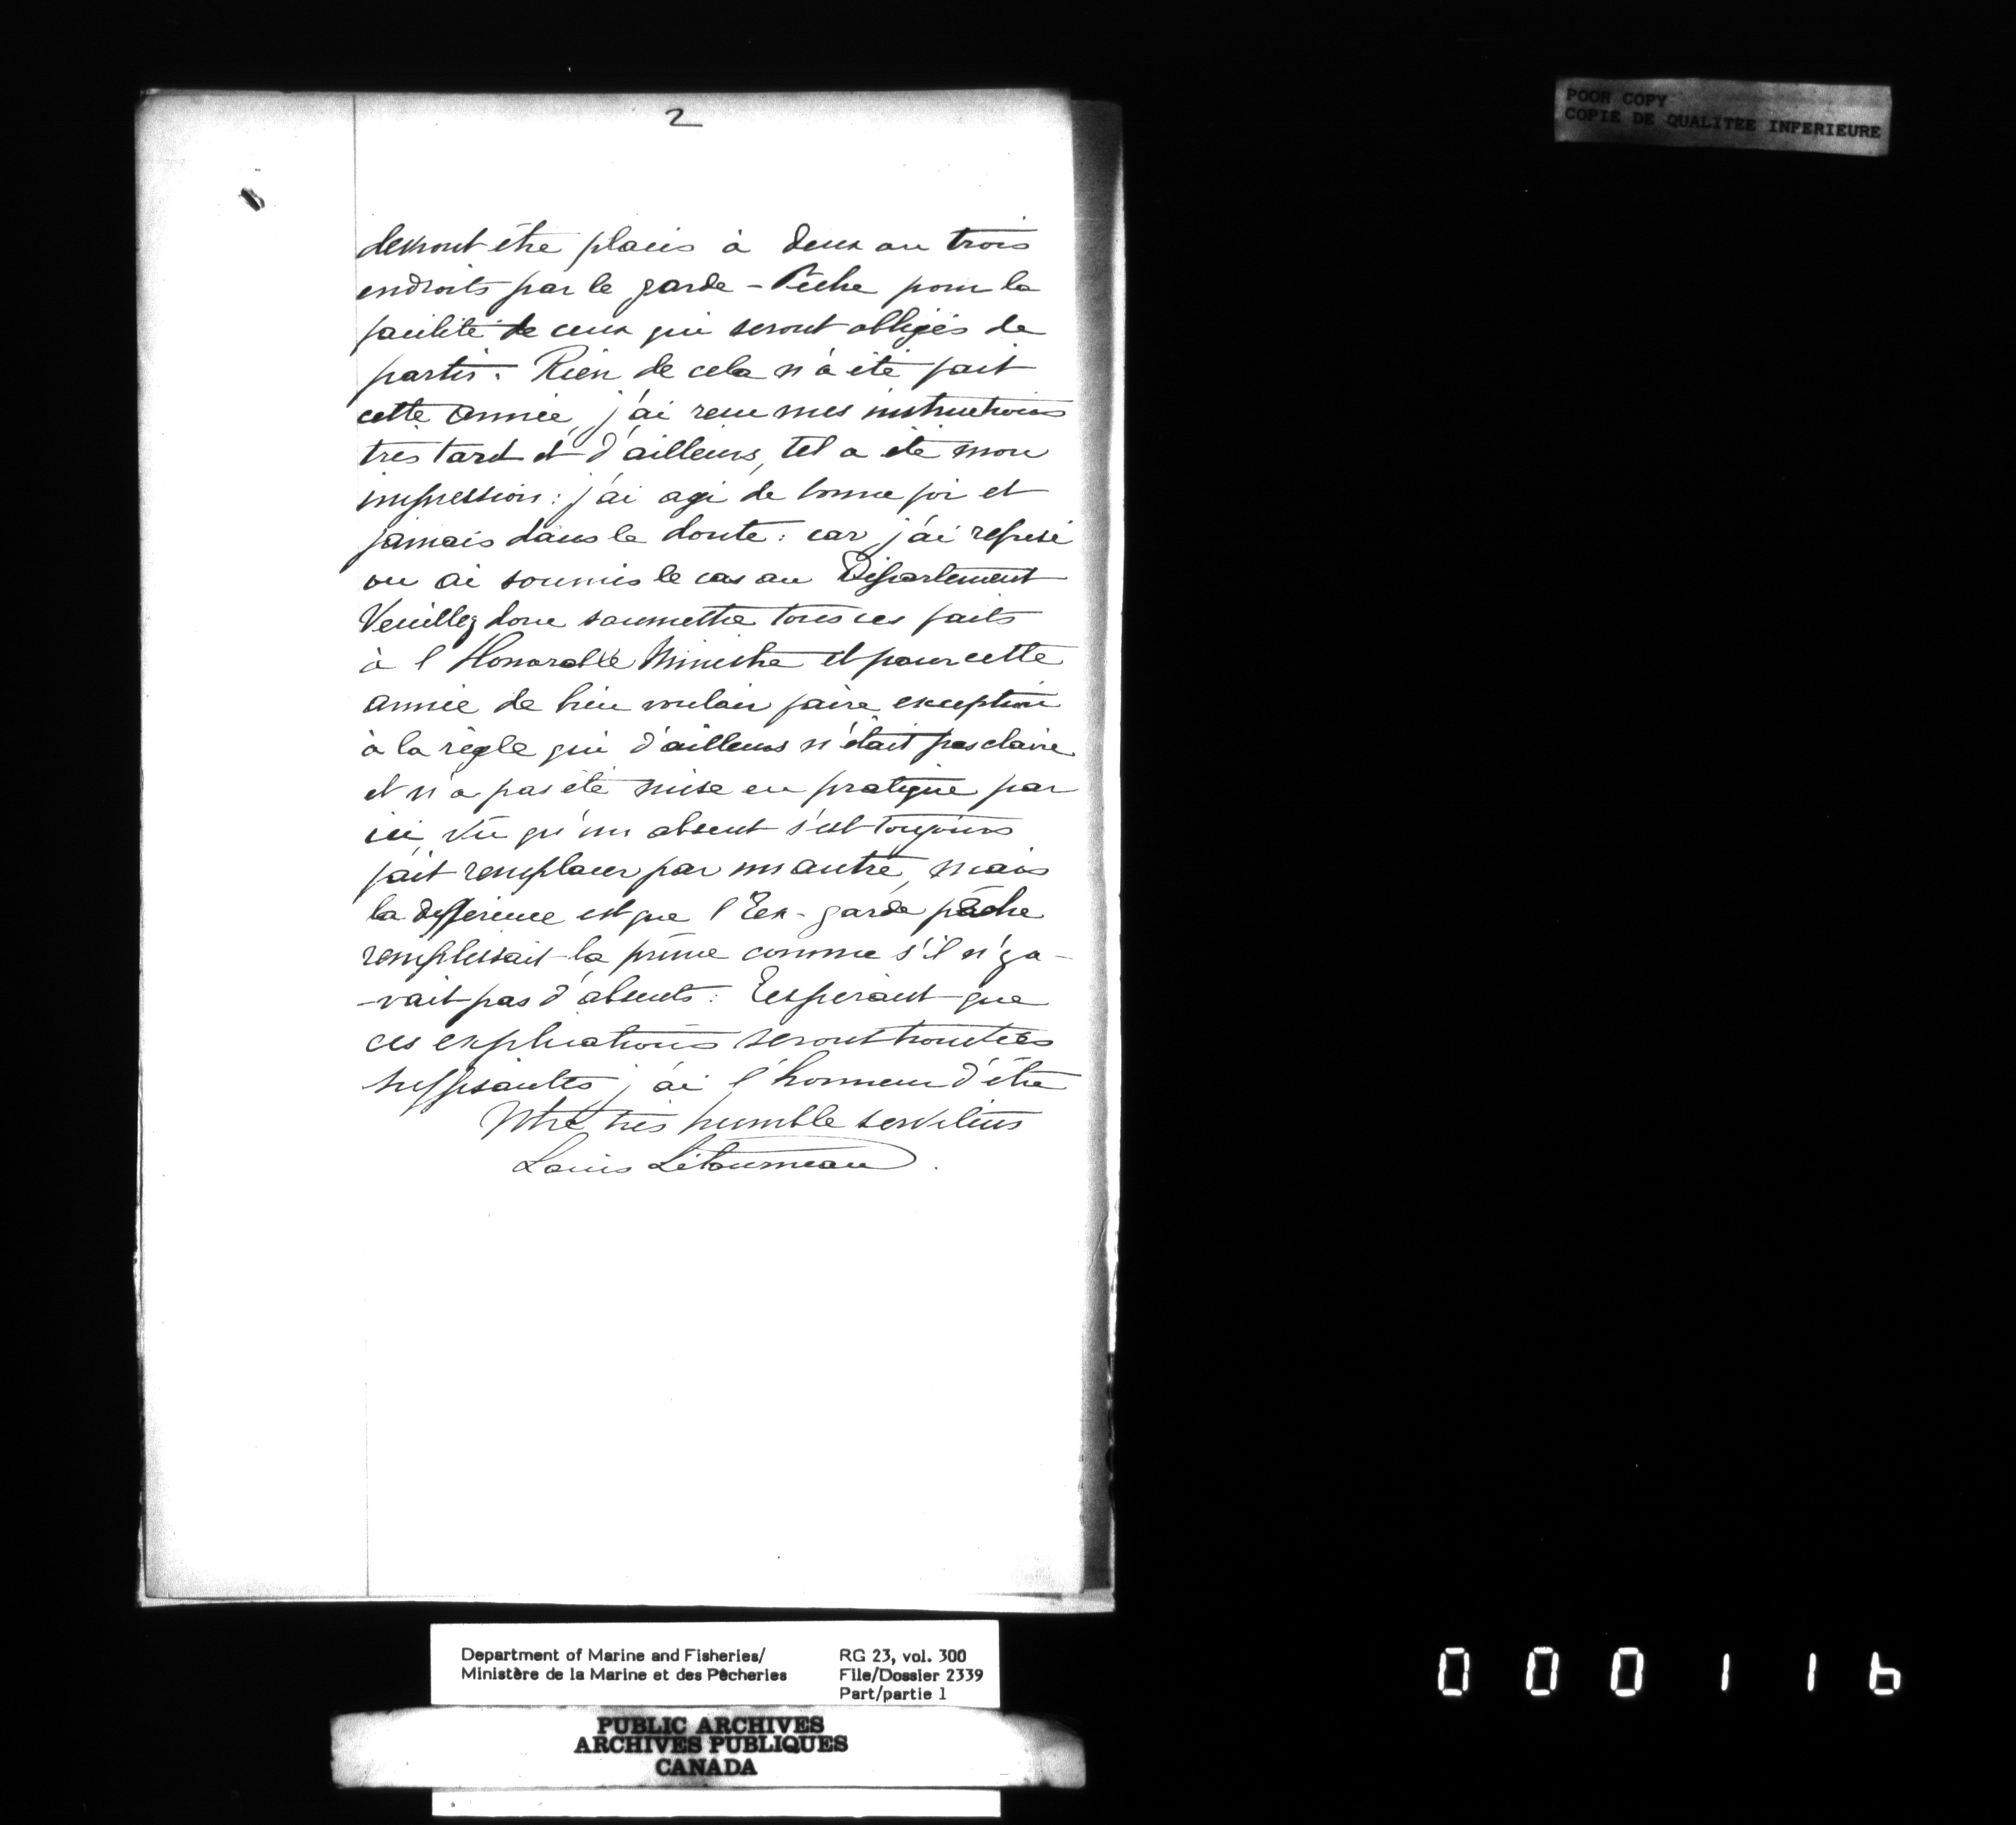 2
POOR COPY
COPIE DE QUALITEE INFERIEURE
devront être placés à deux ou trois
endroits par le garde-Pêche pour la
facilité de ceux qui seront obligés de
partir. Rien de cela n'a été fait
cette année, j'ai reçu mes instructions
très tard et d'ailleurs, tel a été mon
impression: j'ai agi de bonne foi et
jamais dans le doute: car j'ai refusé
ou ai soumis le cas au Département
Veuillez donc soumettre tous ces faits
à l'Honorable Ministre et pour cette
année de bien vouloir faire exception
à la règle qui d'ailleurs n'était pas claire
et n'a pas été mise en pratique par
ici, vû qu'un absent s'est toujours
fait remplacer par un autre, mais
la différence est que l'Ex-garde pêche
remplissait la prime comme s'il n'y a-
-vait pas d'absents: Eespérant que
ces explications seront trouvées
suffisantes j'ai l'honneur d'être
Votre très humble serviteur
Louis Létourneau.
Department of Marine and Fisheries/
Ministère de la Marine et des Pêcheries
RG 23, vol. 300
File/Dossier 2339
Part/partie 1
PUBLIC ARCHIVES
ARCHIVES PUBLIQUES
CANADA
000116